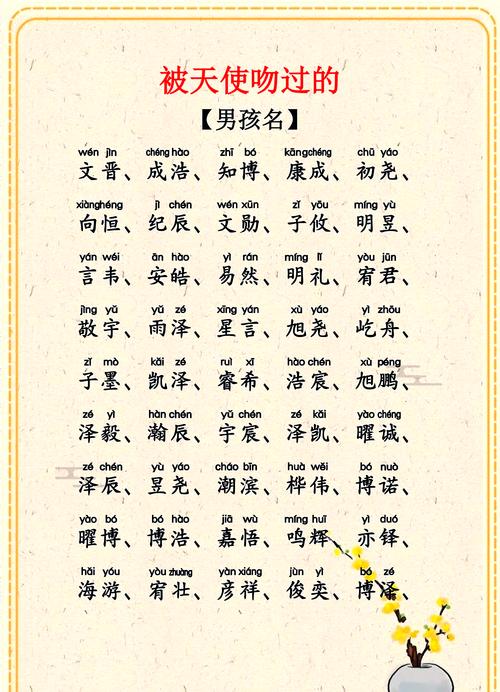 被天使吻过的
【男孩名】
wén jìn chéng hào zhī bó kāng chéng chū yáo
文晋、成浩、知博、康成、初尧、
xiàng héng jì chén wén xūn zǐ yōu míng yù
向恒、纪辰、文勋、子攸、明昱、
yán wéi ān hào yì rán míng lǐ yòu jūn
言韦、安皓、易然、明礼、宥君、
jìng yǔ yǔ zé xīng yán xù yáo yì zhōu
敬宇、雨泽、星言、旭尧、屹舟、
zǐ mò kǎi zé ruì xī hào chén xù péng
子墨、凯泽、睿希、浩宸、旭鹏、
zé yì hàn chén yǔ chén zé kǎi yào chéng
泽毅、瀚辰、宇宸、泽凯、曜诚、
zé chén yù yáo cháo bīn huà wěi bó nuò
泽辰、昱尧、潮滨、桦伟、博诺、
yào bó bó hào jiā wù míng huī yì duó
曜博、博浩、嘉悟、鸣辉、亦铎、
hǎi yóu yòu zhuàng yàn xiáng jùn yì bó zé
海游、宥壮、彦祥、俊奕、博泽、